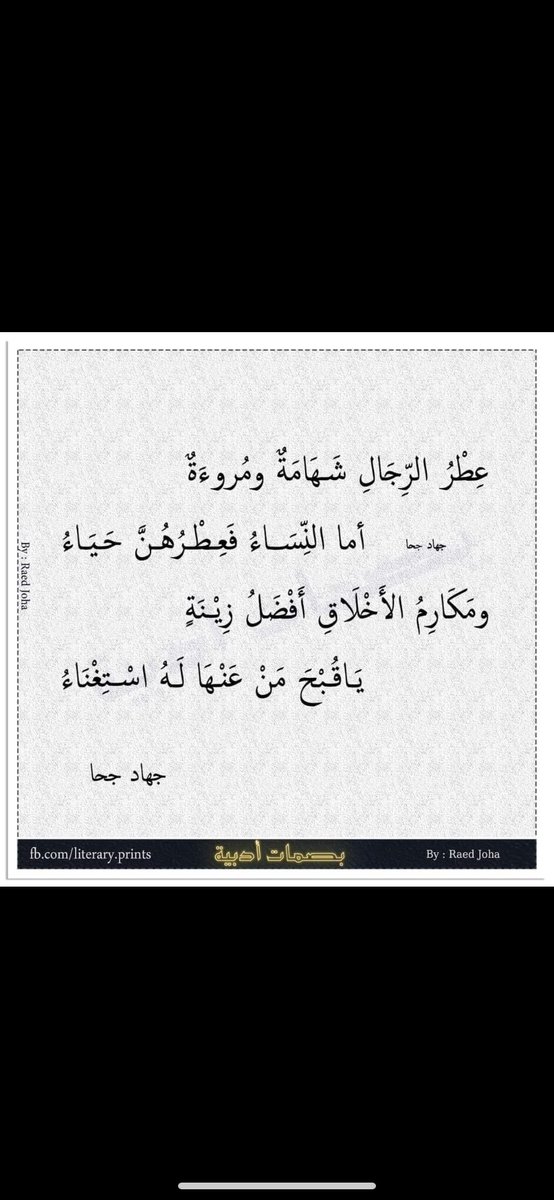 عِطْرُ الرِّجَالِ شَهَامَةٌ ومُروءَةٌ
أما النِّسَاءُ فَعِطْرُهُنَّ حَيَاءُ
جهاد جحا
ومَكَارِمُ الأَخْلَاقِ أَفْضَلُ زِيْنَةٍ
يَاقُبْحَ مَنْ عَنْهَا لَهُ اسْتِغْنَاءُ
جهاد جحا
By : Raed Joha
fb.com/literary.prints
بصمات أدبية
By : Raed Joha